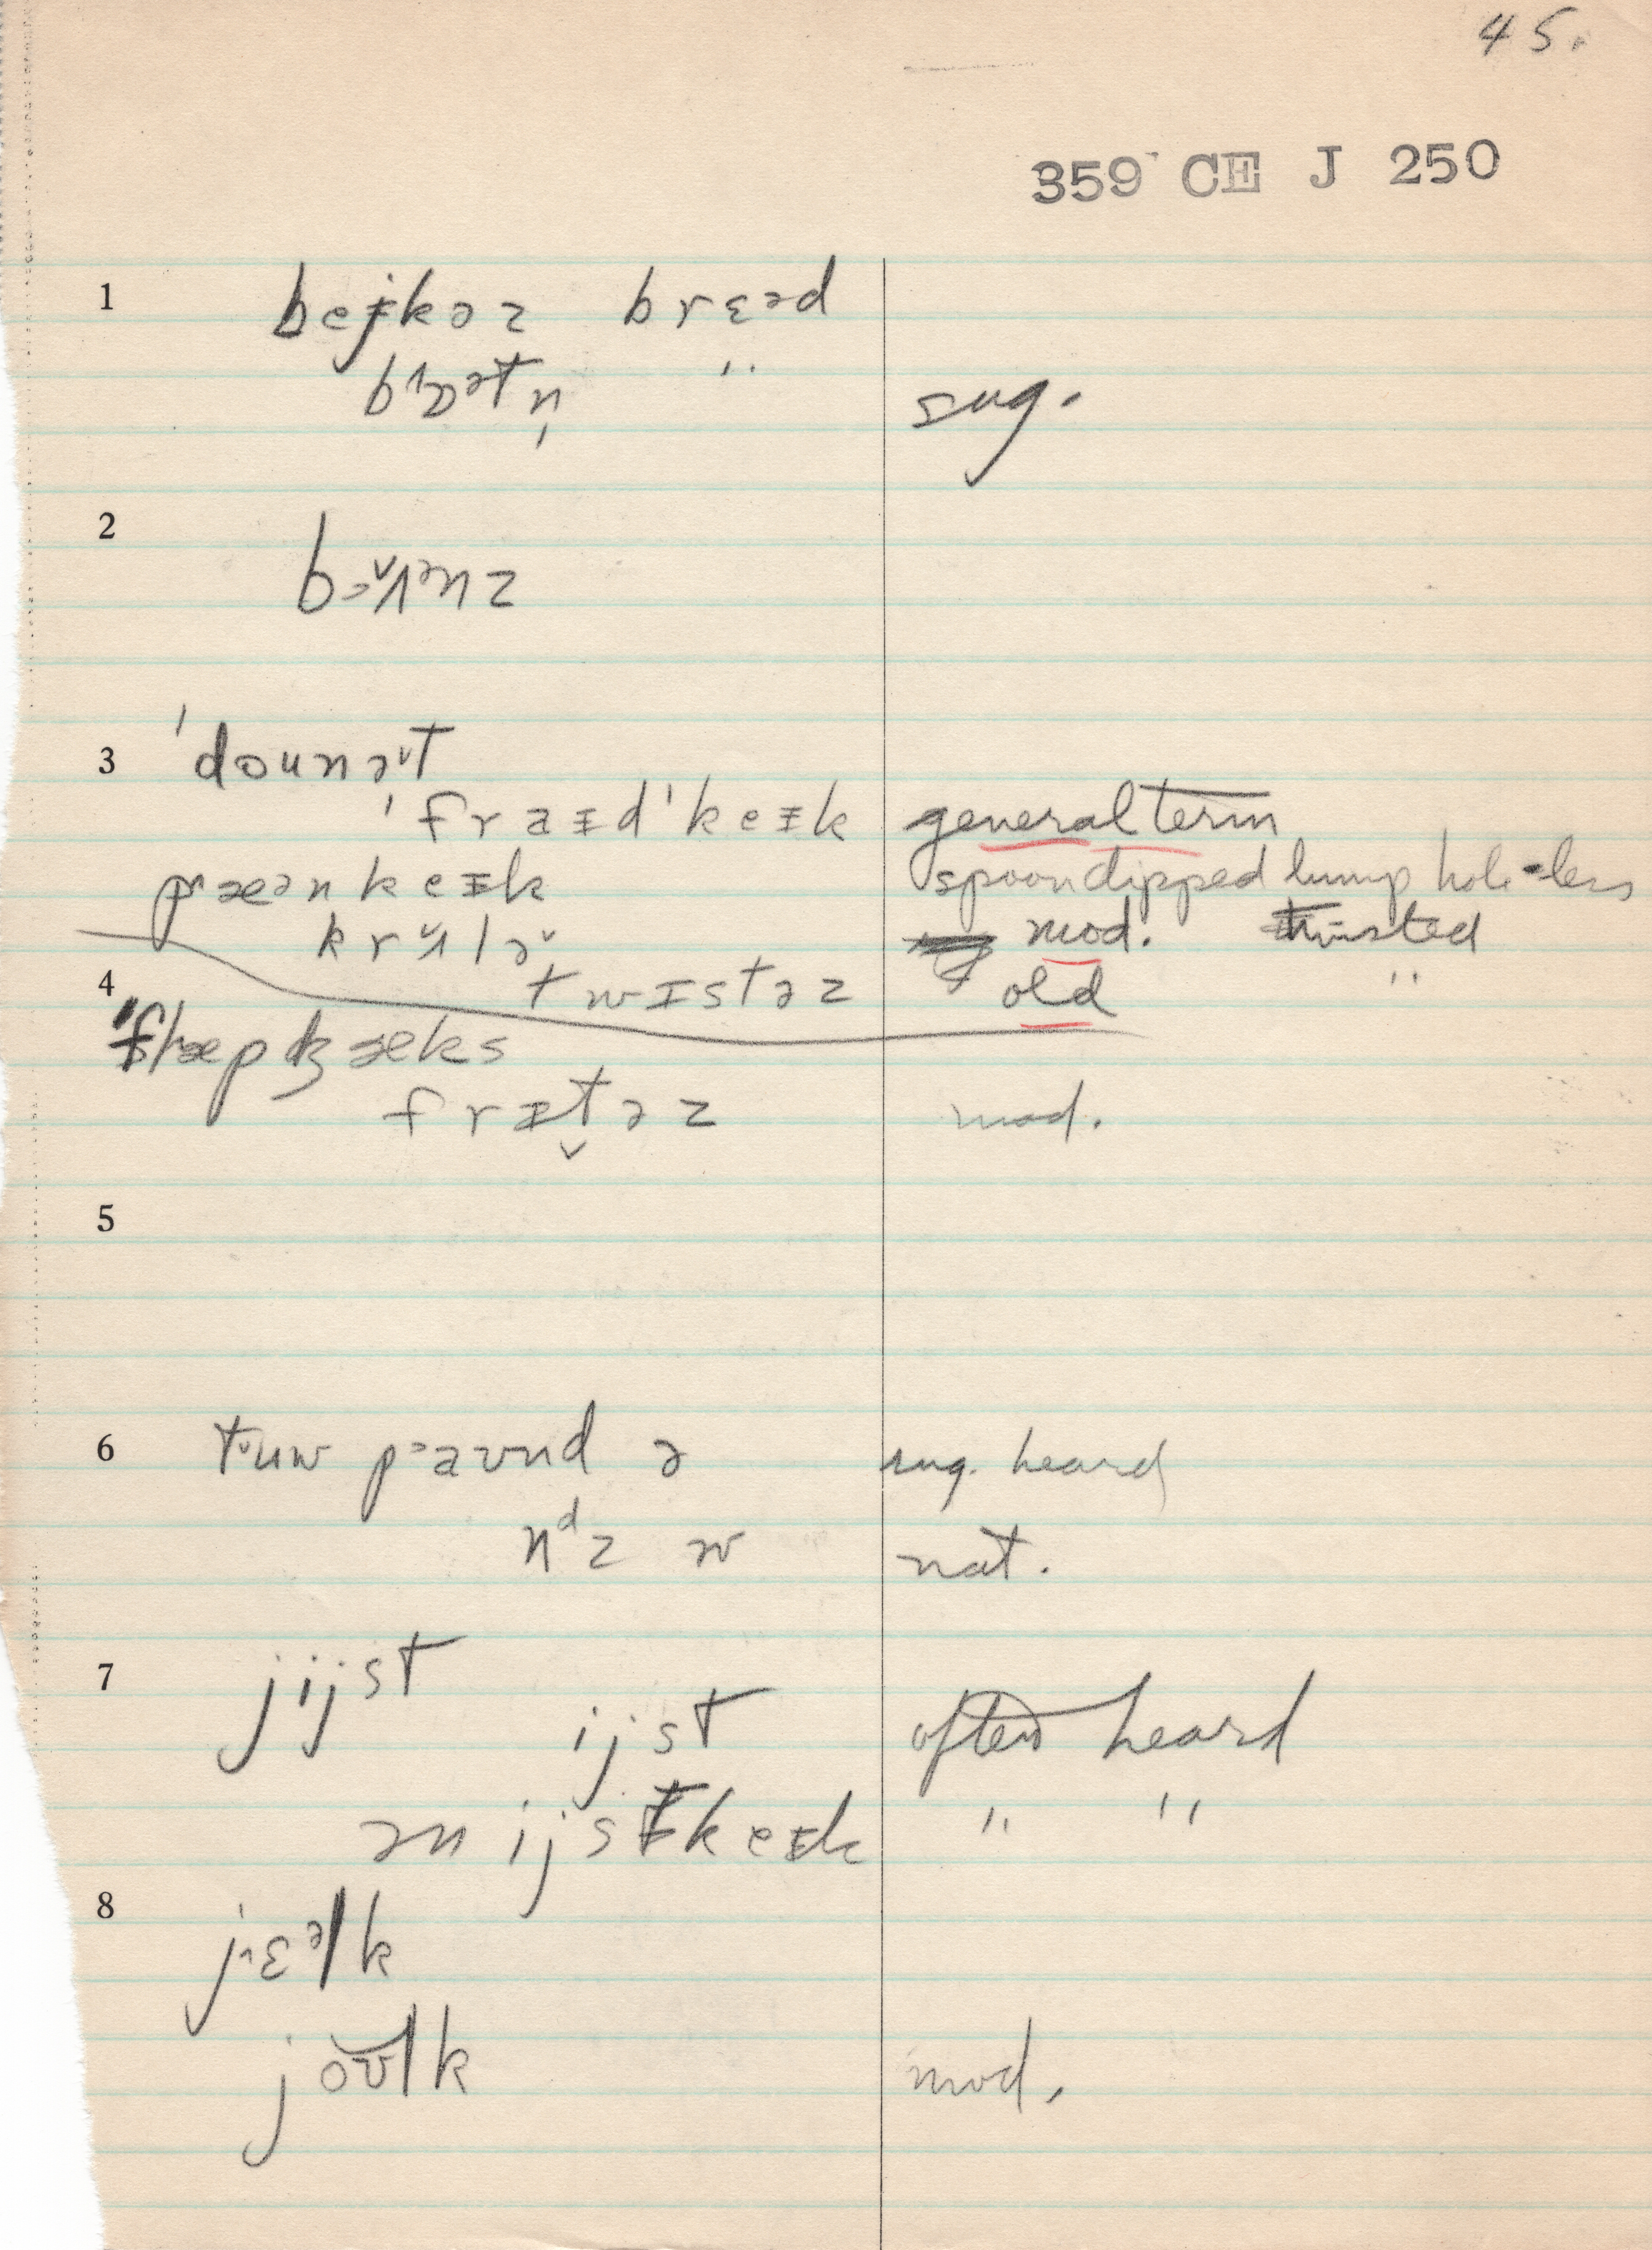 45.
359 CE J 250
1 bejkəz brɛəd
"
sug.
2
3 ˈdounəˇt
ˈfraɪdˈkeɪk general term
pæənkeɪk spoondipped lump hole-less
mod. twisted
4 twɪstəz old "
flæpʤæks
frɪt̬əz mod.
5
6 sug. heard
nᵈz w nat.
7 jijst
ijst often heard
ən ijstkeɪk " "
8 j˄ɛᵊlk
joʊlk mod.